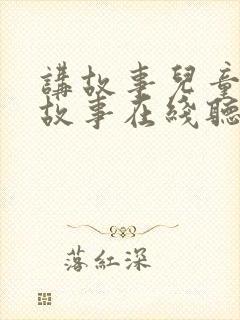 講故事兒童
故事在綫聽
落紅深